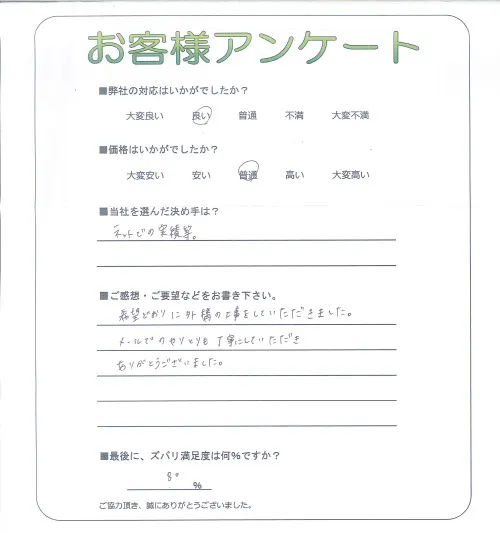 お客様アンケート
■弊社の対応はいかがでしたか？
大変良い 良い 普通 不満 大変不満
■価格はいかがでしたか？
大変安い 安い 普通 高い 大変高い
■当社を選んだ決め手は？
ネットでの実績等。
■ご感想・ご要望などをお書き下さい。
希望どおりに外構の工事をしていただきました。
メールでのやりとりも丁寧にしていただき
ありがとうございました。
■最後に、ズバリ満足度は何％ですか？
80
％
ご協力頂き、誠にありがとうございました。